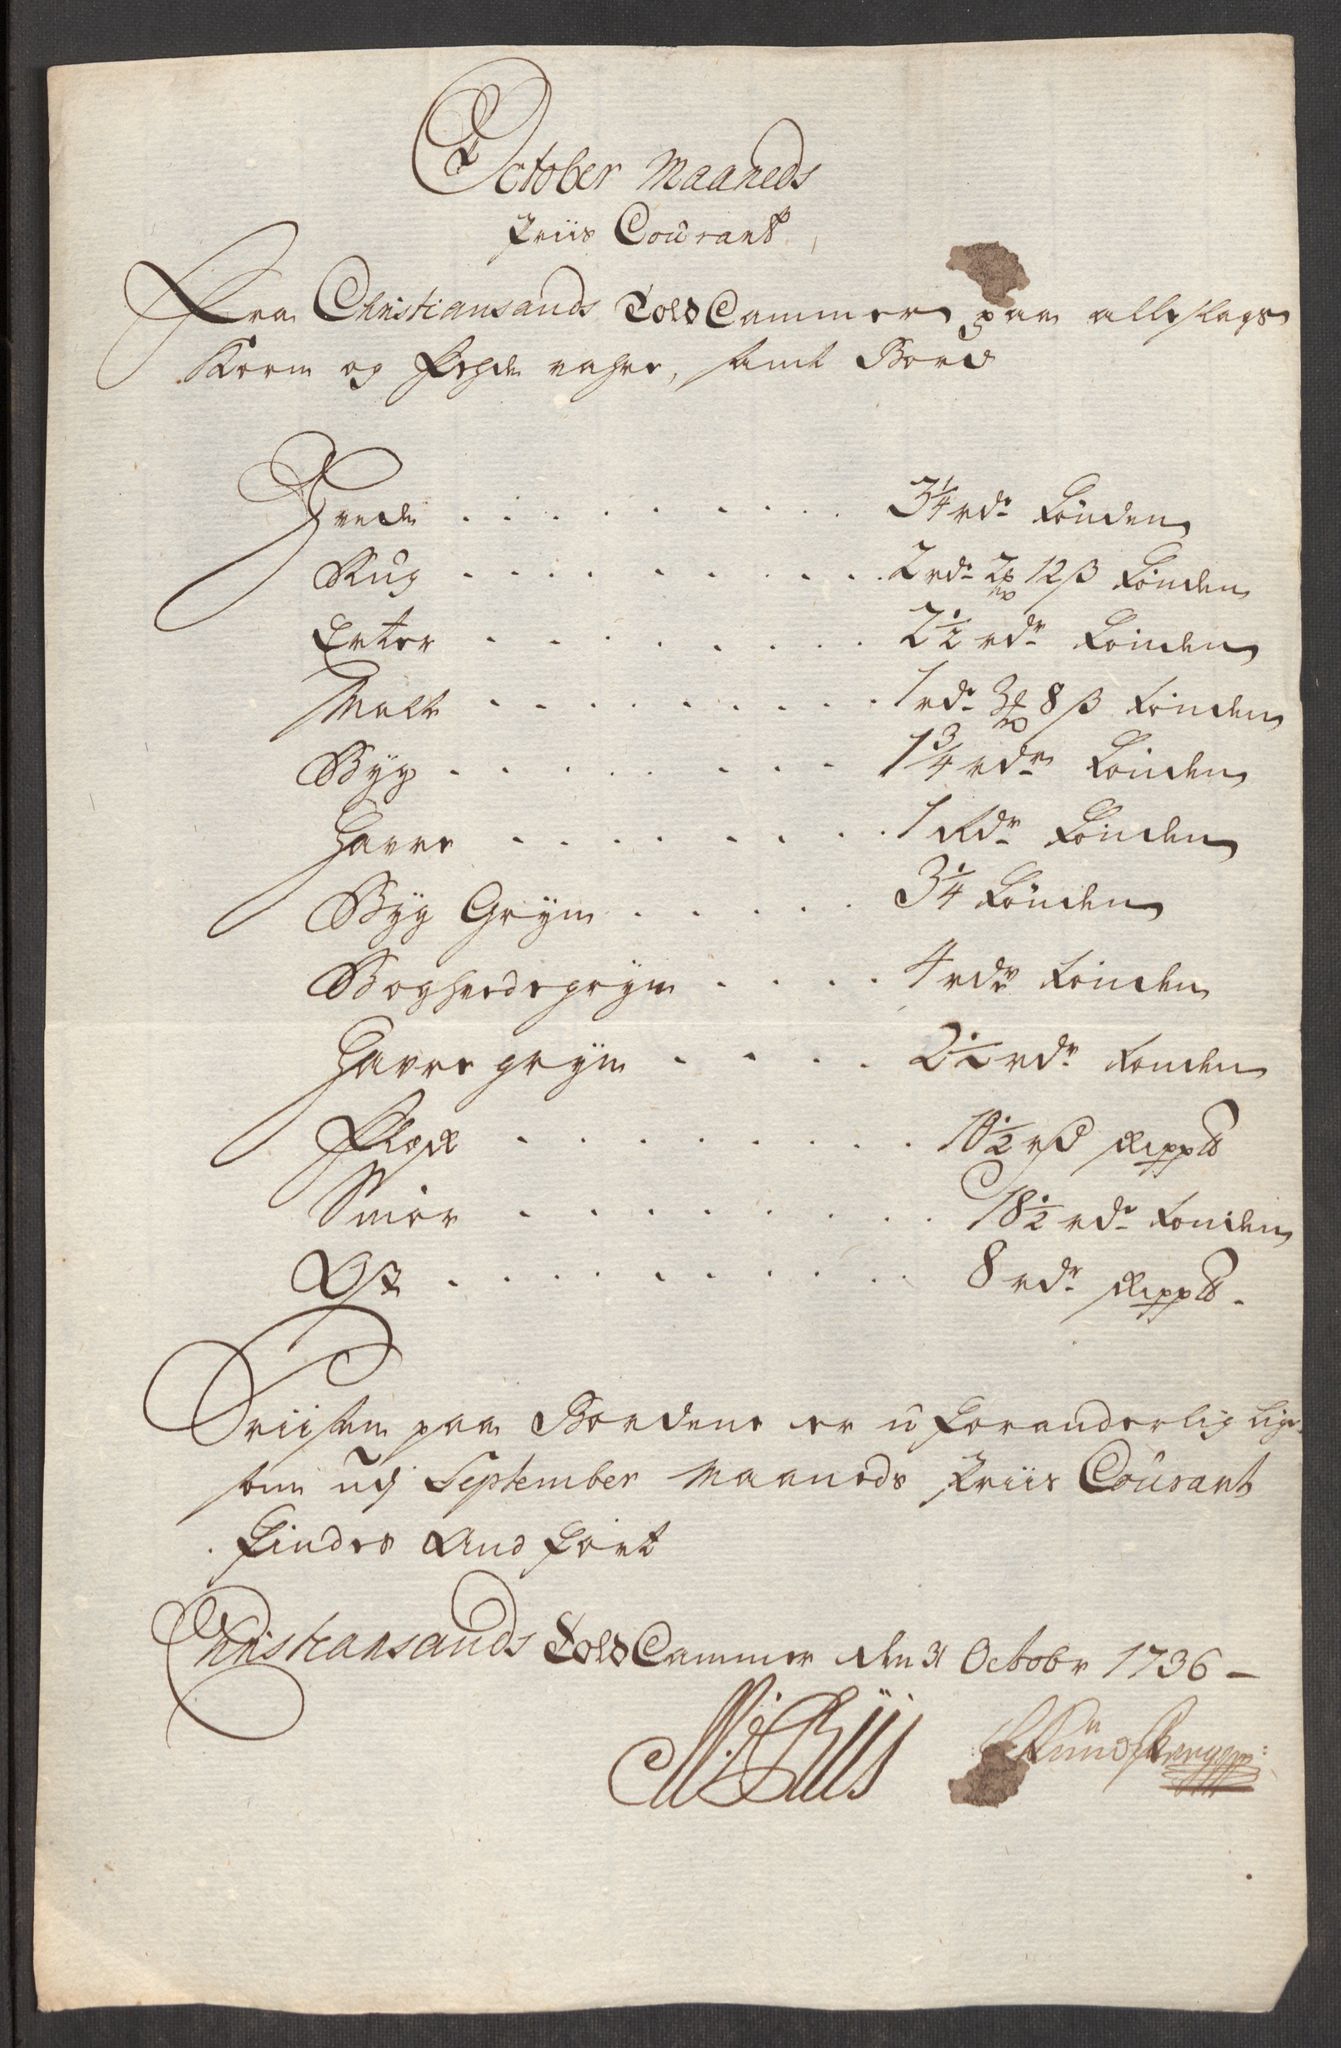 October Maaneds
Priis Courant
Fra Christiansands Told Cammer paa alle slags
Korn og fehde vahre, samt Bord
Hvede . . . . . . . . . 3 1/4 rdr Tönden
Rug . . . . . . . . . . 2 rdr 2 12 β Tönden
Erter . . . . . . . 2 1/2 rdr Tönden
Malt . . . . . . . . . 1 rdr 3 8 β Tönden
Byg . . . . . . . . 1 3/4 rdr Tönden
Havre . . . . . . . 1 Rdr Tönden
Byg Gryn . . . . . 3 1/4 Tönden
Boghvedegryn . . . . 4 rdr Tönden
Havre gryn . . . . 2 1/2 rdr Tönden
Flesk . . . . . . . . . 10 1/2 rd Skipp℔
Smör . . . . . . . . 18 1/2 rdr Tönden
Ost . . . . . . . . . . 8 rdr Skipp℔
Priisen paa Bordene er uforanderlig lige
som udj September Maaneds Priis Courant
findes Andfört
Christiansands Told Cammer den 31 Octobr 1736
Riis